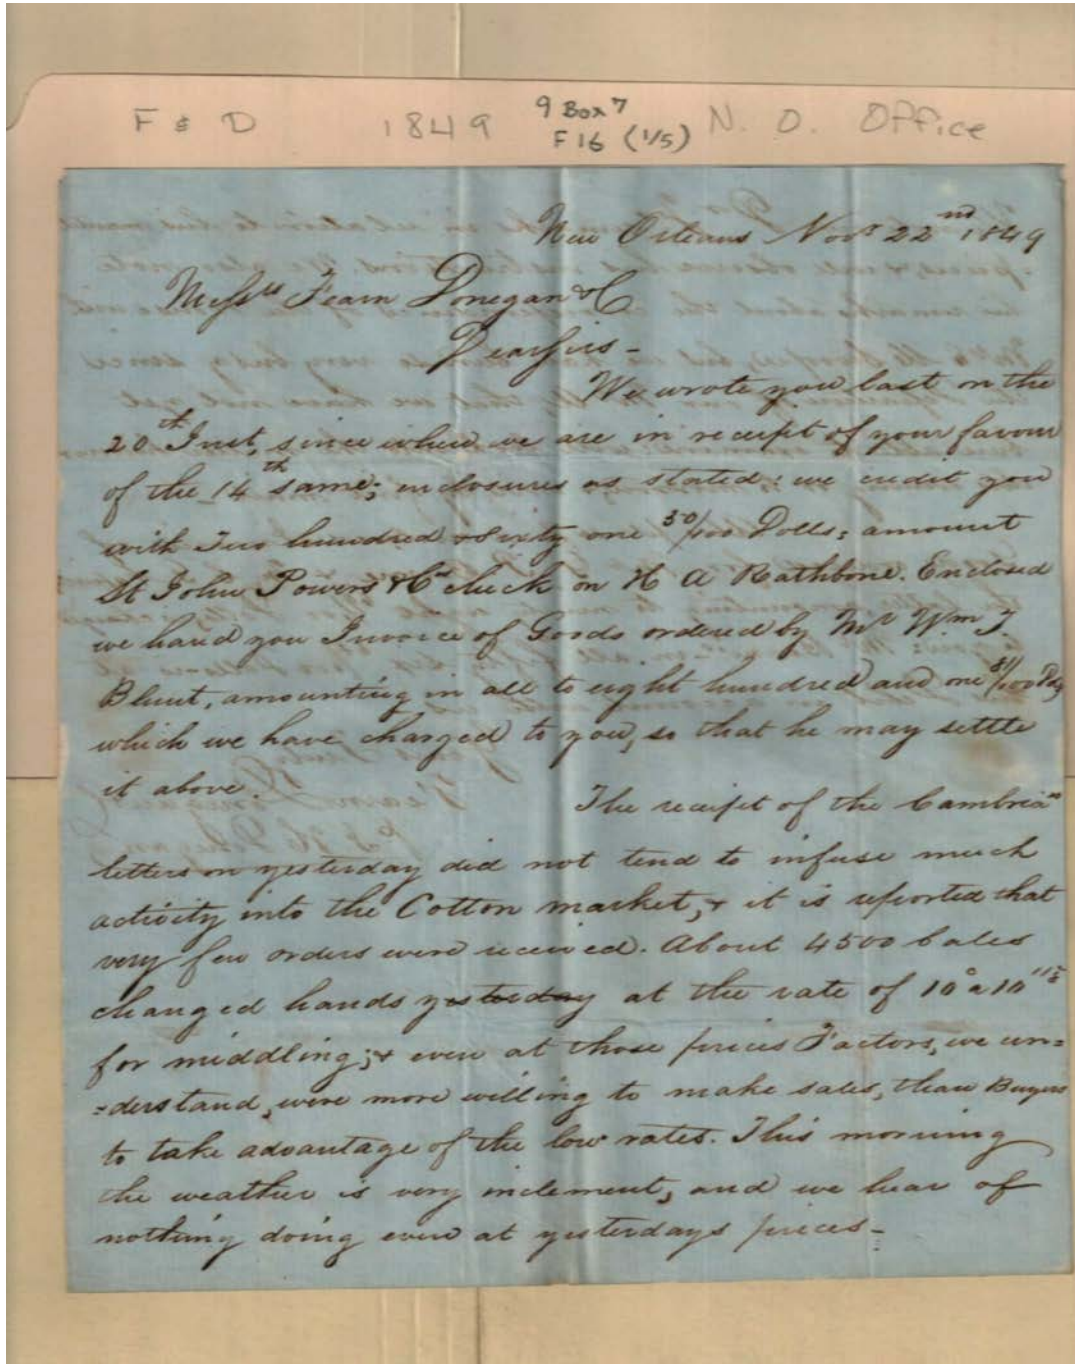 F & D 1849 9 Box 7 N. O. Office
F 16 (1/5)
New Orleans Novr 22nd 1849
Messrs Fearn Donegan & C
Dear Sirs -
We wrote you last on the
20th Inst, since when we are in receipt of your favour
of the 14th same; enclosures as stated: we credit you
with Two hundred & sixty one 30/100 Dolls; amount
St John Powers & Co check on H A Rathbone. Enclosed
we hand you Invoice of Goods ordered by Mr Wm T.
Blunt, amounting in all to eight hundred and one /100
which we have charged to you, so that he may settle
it above.
The receipt of the Cambria's
letters on yesterday did not tend to infuse much
activity into the Cotton market, & it is reported that
very few orders were received. About 4500 bales
changed hands yesterday at the rate of 10 a 10
for middling; & even at those prices Factors, we un=
=derstand, were more willing to make sales, than Buyers
to take advantage of the low rates. This morning
the weather is very inclement, and we hear of
nothing doing even at yesterdays prices -